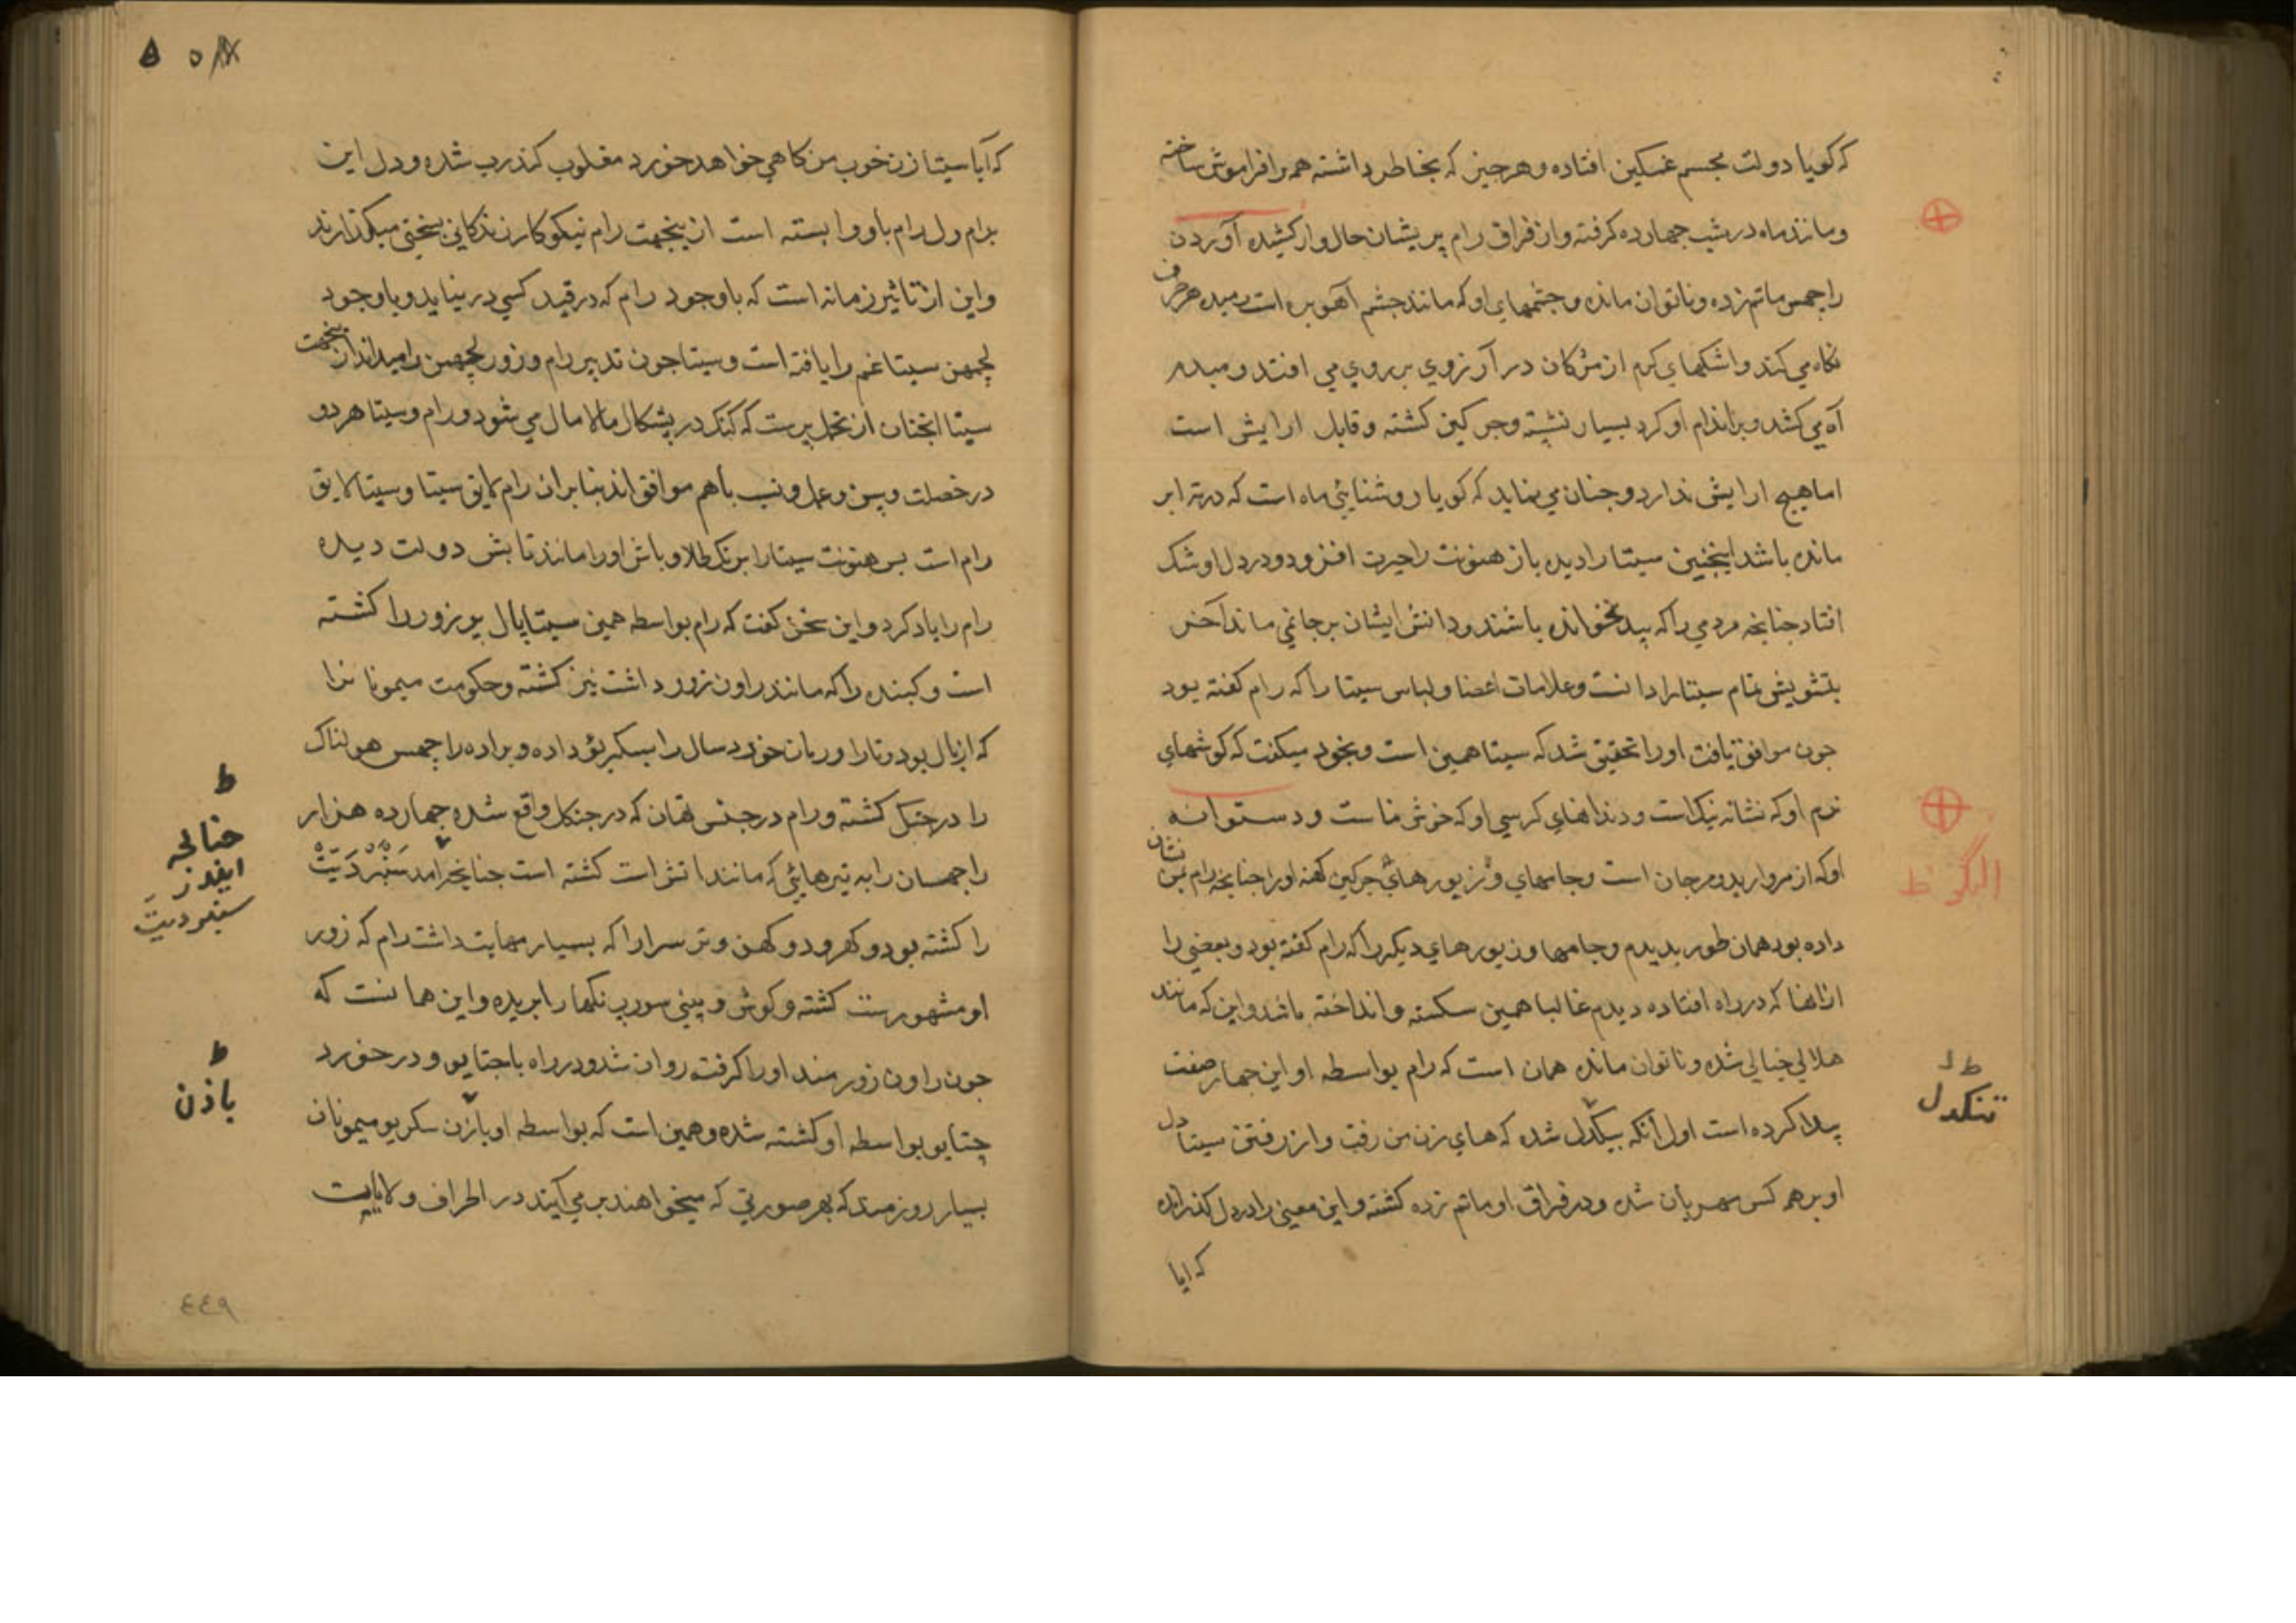 که کویا دولت مجسم غمکین افتاده وهرچیز که بخاطر داشته همه را فراموش ساخته
ومانند ماه در شب چهارده کرفته واز فراق رام پریشان حال وار کشیده آوردن
را چهس ماتم زده وناتوان مانده وچشمهای او که مانند چشم آهو بره است رمیده هر طرف
نکاه می کند واشکهای کرم از مژکان در آرزوی بر روی می افتد و
آه می کشد وبر اندام او کرد بسیار نشسته وچرکین کشته وقابل ارایش است
اما هیچ ارایش ندارد وچنان می نماید که کویا روشنایی ماه است که در ته ابر
مانده باشد اینچنین سیتا را دیده باز هنونت را حیرت افزود ودر دل او شک
افتاد چنانچه مردمی را که بید نخوانده باشند ودانش ایشان برجا نمی ماند آخر
بتشویش تمام سیتا را دانست وعلامات اعضا ولباس سیتا را که رام کفته بود
چون موافق یافت اورا تحقیق شد که سیتا همین است وبخود میکفت که کوشهای
نرم او که نشانه نیک است ودندانهای کرسی او که خوش نماست ودستوانه
او که از مروارید ومرجان است وجامهای وزیورهای چرکین کهنه اورا چنانچه رام بمن نشان
داده بود همان طور بدیدم وجامها وزیورهای دیکر را که رام کفته بود وبعضی را
ازانها که در راه افتاده دیدم غالبا همین سکسته وانداخته باشد واین که مانند
هلالی خیالی شده وناتوان مانده همان است که رام بواسطه او این چهار صفت
پیدا کرده است اول آنکه بیکدل شده که های زن من رفت واز رفتن سیتا دل
او بر همه کس مهربان شده ودر فراق او ماتم زده کشته واین معنی را در دل کذرانده
که ایا
تنکدل
که آیا سیتا زن خوب من کاهی خواهد خورد مغلوب کندرب شده ودل این
برام ودل رام باو وابسته است ازینجهت رام نیکوکار زندکانی بسختی میکذارند
واین از تاثیر زمانه است که باوجود رام که در قید کسی در نیاید وباوجود
لچهمن سیتا غم را یافته است وسیتا چون تدبیر رام وزور لچهمن را میداند ازینجهت
سیتا انچنان از تحمل پرست که کنک در پشکال مالامال می شود ورام وسیتا هر دو
در خصلت وسن وعمل ونسب باهم موافق اند بنابران رام لایق سیتا وسیتا لایق
رام است پس هنونت سیتا را برنک طلا وباش اورا مانند تابش دولت دیده
رام را یاد کرد واین سخن کفت که رام بواسطه همین سیتا پال پر زور را کشته
است وکبنده را که مانند راون زور داشت نیز کشته وحکومت میمونانرا
که از بال بود وتارا وریان خورد سال را بسکریو داده وبراده را چهس هولناک
را در جنکل کشته ورام در جنس تهان که در جنکل واقع شده چهارده هزار
راچهسان را به تیرهائی که مانند اتش است کشته است چنانچه امد سنبردیت
را کشته بود وکهر ودوکهن وتر سرا را که بسیار مهابت داشت رام که زور
او مشهورست کشته وکوش وبینی سورپ نکها را بریده واین همانست که
چون راون زورمند اورا کرفته روان شد ودر راه باجتایو ودر خورد
جتایو بواسطه او کشته شده وهمین است که بواسطه او بازن سکریو میمونان
بسیار روزمند که بهر صورتی که میخواهند بر می آیند در اطراف ولایات
ط
چنانچه
ایندر
سنبردیت
ط
باذن
٤٤٩